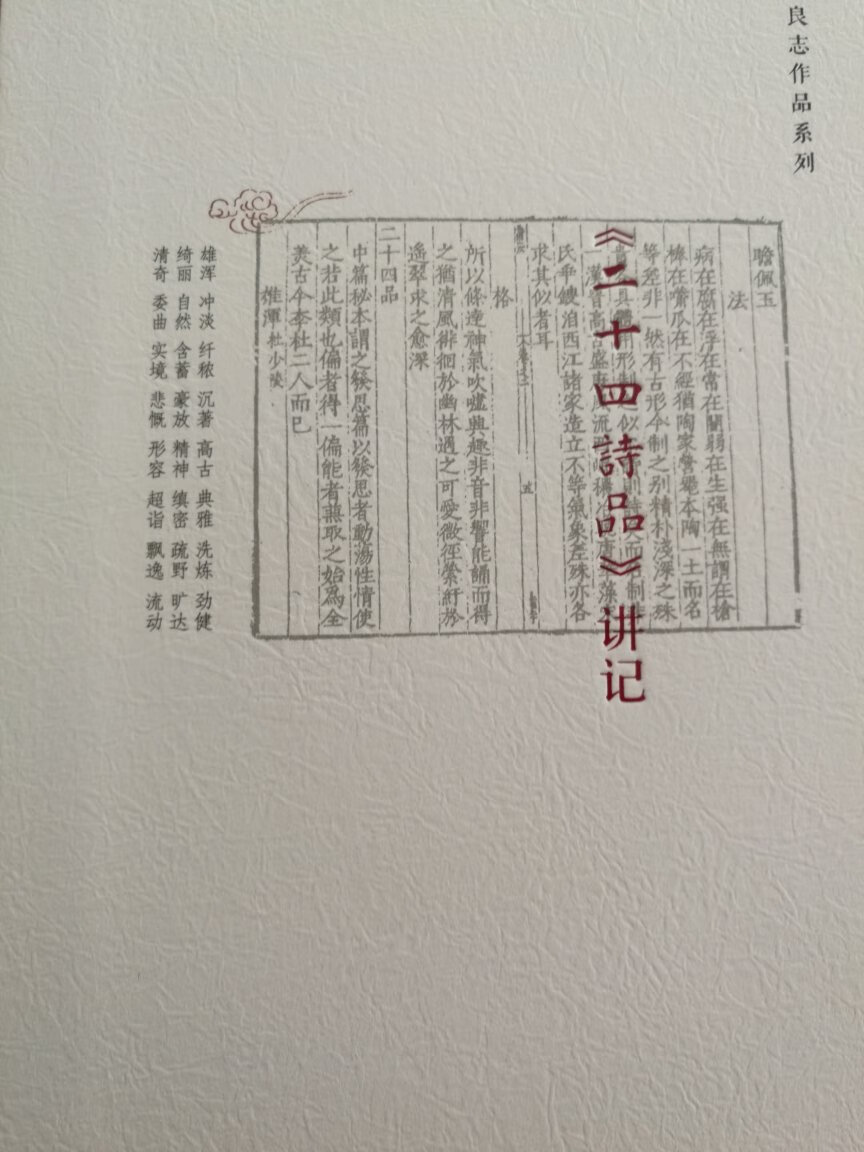 良志作品系列
《二十四詩品》讲记
瞻佩玉
法
病在腐在浮在常在闇弱在生强在無謂在槍
棒在嘴瓜在不經猶陶家營甕本陶一土而名
等差非一然有古形今制之别精朴淺深之殊
氏爭鍐洎西江諸家造立不等氣象差殊亦各
求其似者耳
格
五
所以條達神氣吹噓興趣非音非響能誦而得
之猶清風徘徊於幽林遇之可愛微徑縈紆於
遥翠求之愈深
二十四品
中篇秘本謂之發思篇以發思者動蕩性情使
之若此類也偏者得一偏能者兼取之始爲全
美古今李杜二人而已
雄渾 杜少陵
雄浑 冲淡 纤秾 沉著 高古 典雅 洗炼 劲健
绮丽 自然 含蓄 豪放 精神 缜密 疏野 旷达
清奇 委曲 实境 悲慨 形容 超诣 飘逸 流动